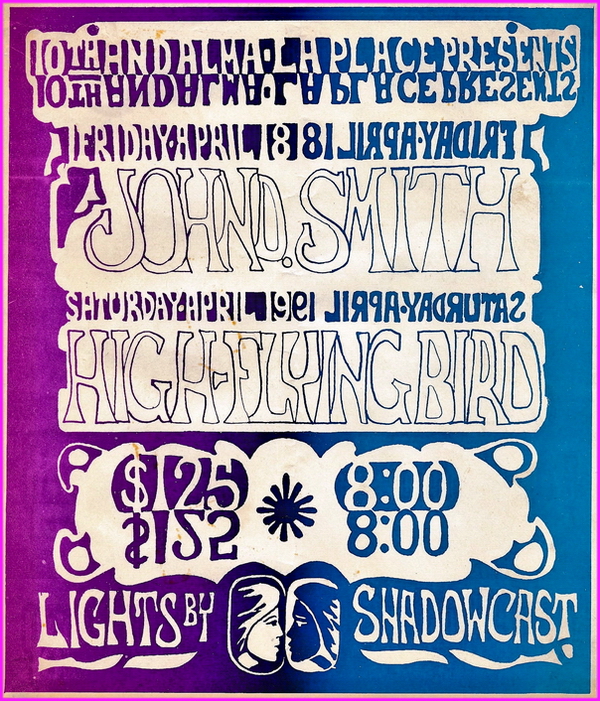 10TH AND ALMA · LA PLACE PRESENTS
10TH AND ALMA · LA PLACE PRESENTS
FRIDAY · APRIL 18 81 LIRPA · YADIRF
JOHN D. SMITH
SATURDAY · APRIL 19 91 LIRPA · YADRUTAS
HIGH-FLYING BIRD
$125 8:00
$125 8:00
LIGHTS BY SHADOWCAST